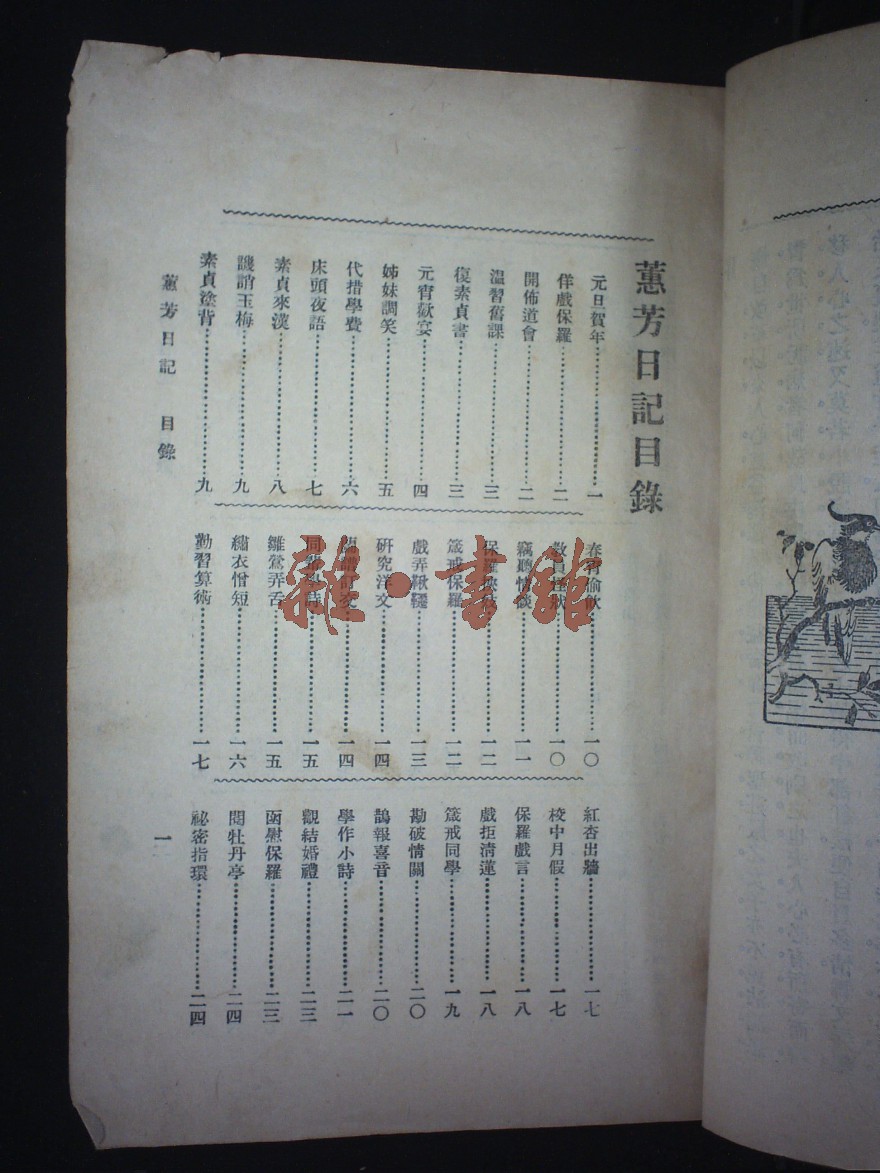 蕙芳日記目錄
元旦賀年一
佯戲保羅二
開佈道會二
溫習舊課三
復素貞書三
元宵歡宴四
姊妹調笑五
代措學費六
床頭夜語七
素貞來漢八
譏誚玉梅九
素貞塗背九
一〇
教員怪狀一〇
竊聽情談一一
保羅一二
箴戒保羅一二
戲弄鞦韆一三
研究洋文一四
一四
同學詩一五
雛鶯弄舌一五
繡衣憎短一六
勤習算術一七
紅杏出牆一七
校中月假一七
保羅戲言一八
戲拒清蓮一八
箴戒同學一九
勘破情關二〇
鵲報喜音二〇
學作小詩二一
觀結婚禮二三
函慰保羅二三
閱牡丹亭二四
祕密指環二四
蕙芳日記 目錄
一
雜·書館